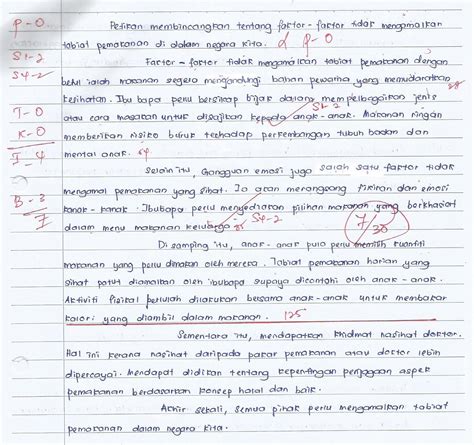 P-0 Petikan membincangkan tentang faktor-faktor tidak mengamalkan
tabiat pemakanan di dalam negara kita. P-0
S1-2 Faktor-faktor tidak mengamalkan tabiat pemakanan dengan
S4-2 betul ialah makanan segera mengandungi bahan pewarna yang memudaratkan
kesihatan. Ibu bapa perlu bersikap bijak dalam mempelbagaikan jenis
S1-2
T-0 atau cara masakan untuk disajikan kepada anak-anak. Makanan ringan
K-0 memberikan risiko buruk terhadap perkembangan tubuh badan dan
I-4 mental anak.
Selain itu, Gangguan emosi juga salah satu faktor tidak
B-3 mengamal pemakanan yang sihat. Ia akan merangsang fikiran dan emosi
7 kanak-kanak. Ibubapa perlu menyediakan pilihan makanan yang berkhasiat
dalam menu makanan keluarga. S4-2
7/30
Di samping itu, anak-anak pula perlu memilih kuantiti
makanan yang perlu dimakan oleh mereka. Tabiat pemakanan harian yang
sihat patut diamalkan oleh ibubapa supaya dicontohi oleh anak-anak.
Aktiviti fizikal perlulah dilakukan bersama anak-anak untuk membakar
kalori yang diambil dalam makanan. 125
Sementara itu, mendapatkan khidmat nasihat doktor.
Hal ini kerana nasihat daripada pakar pemakanan atau doktor lebih
dipercayai. Mendapat didikan tentang kepentingan penjagaan aspek
pemakanan berdasarkan konsep halal dan baik.
Akhir sekali, semua pihak perlu mengamalkan tabiat
pemakanan dalam negara kita.